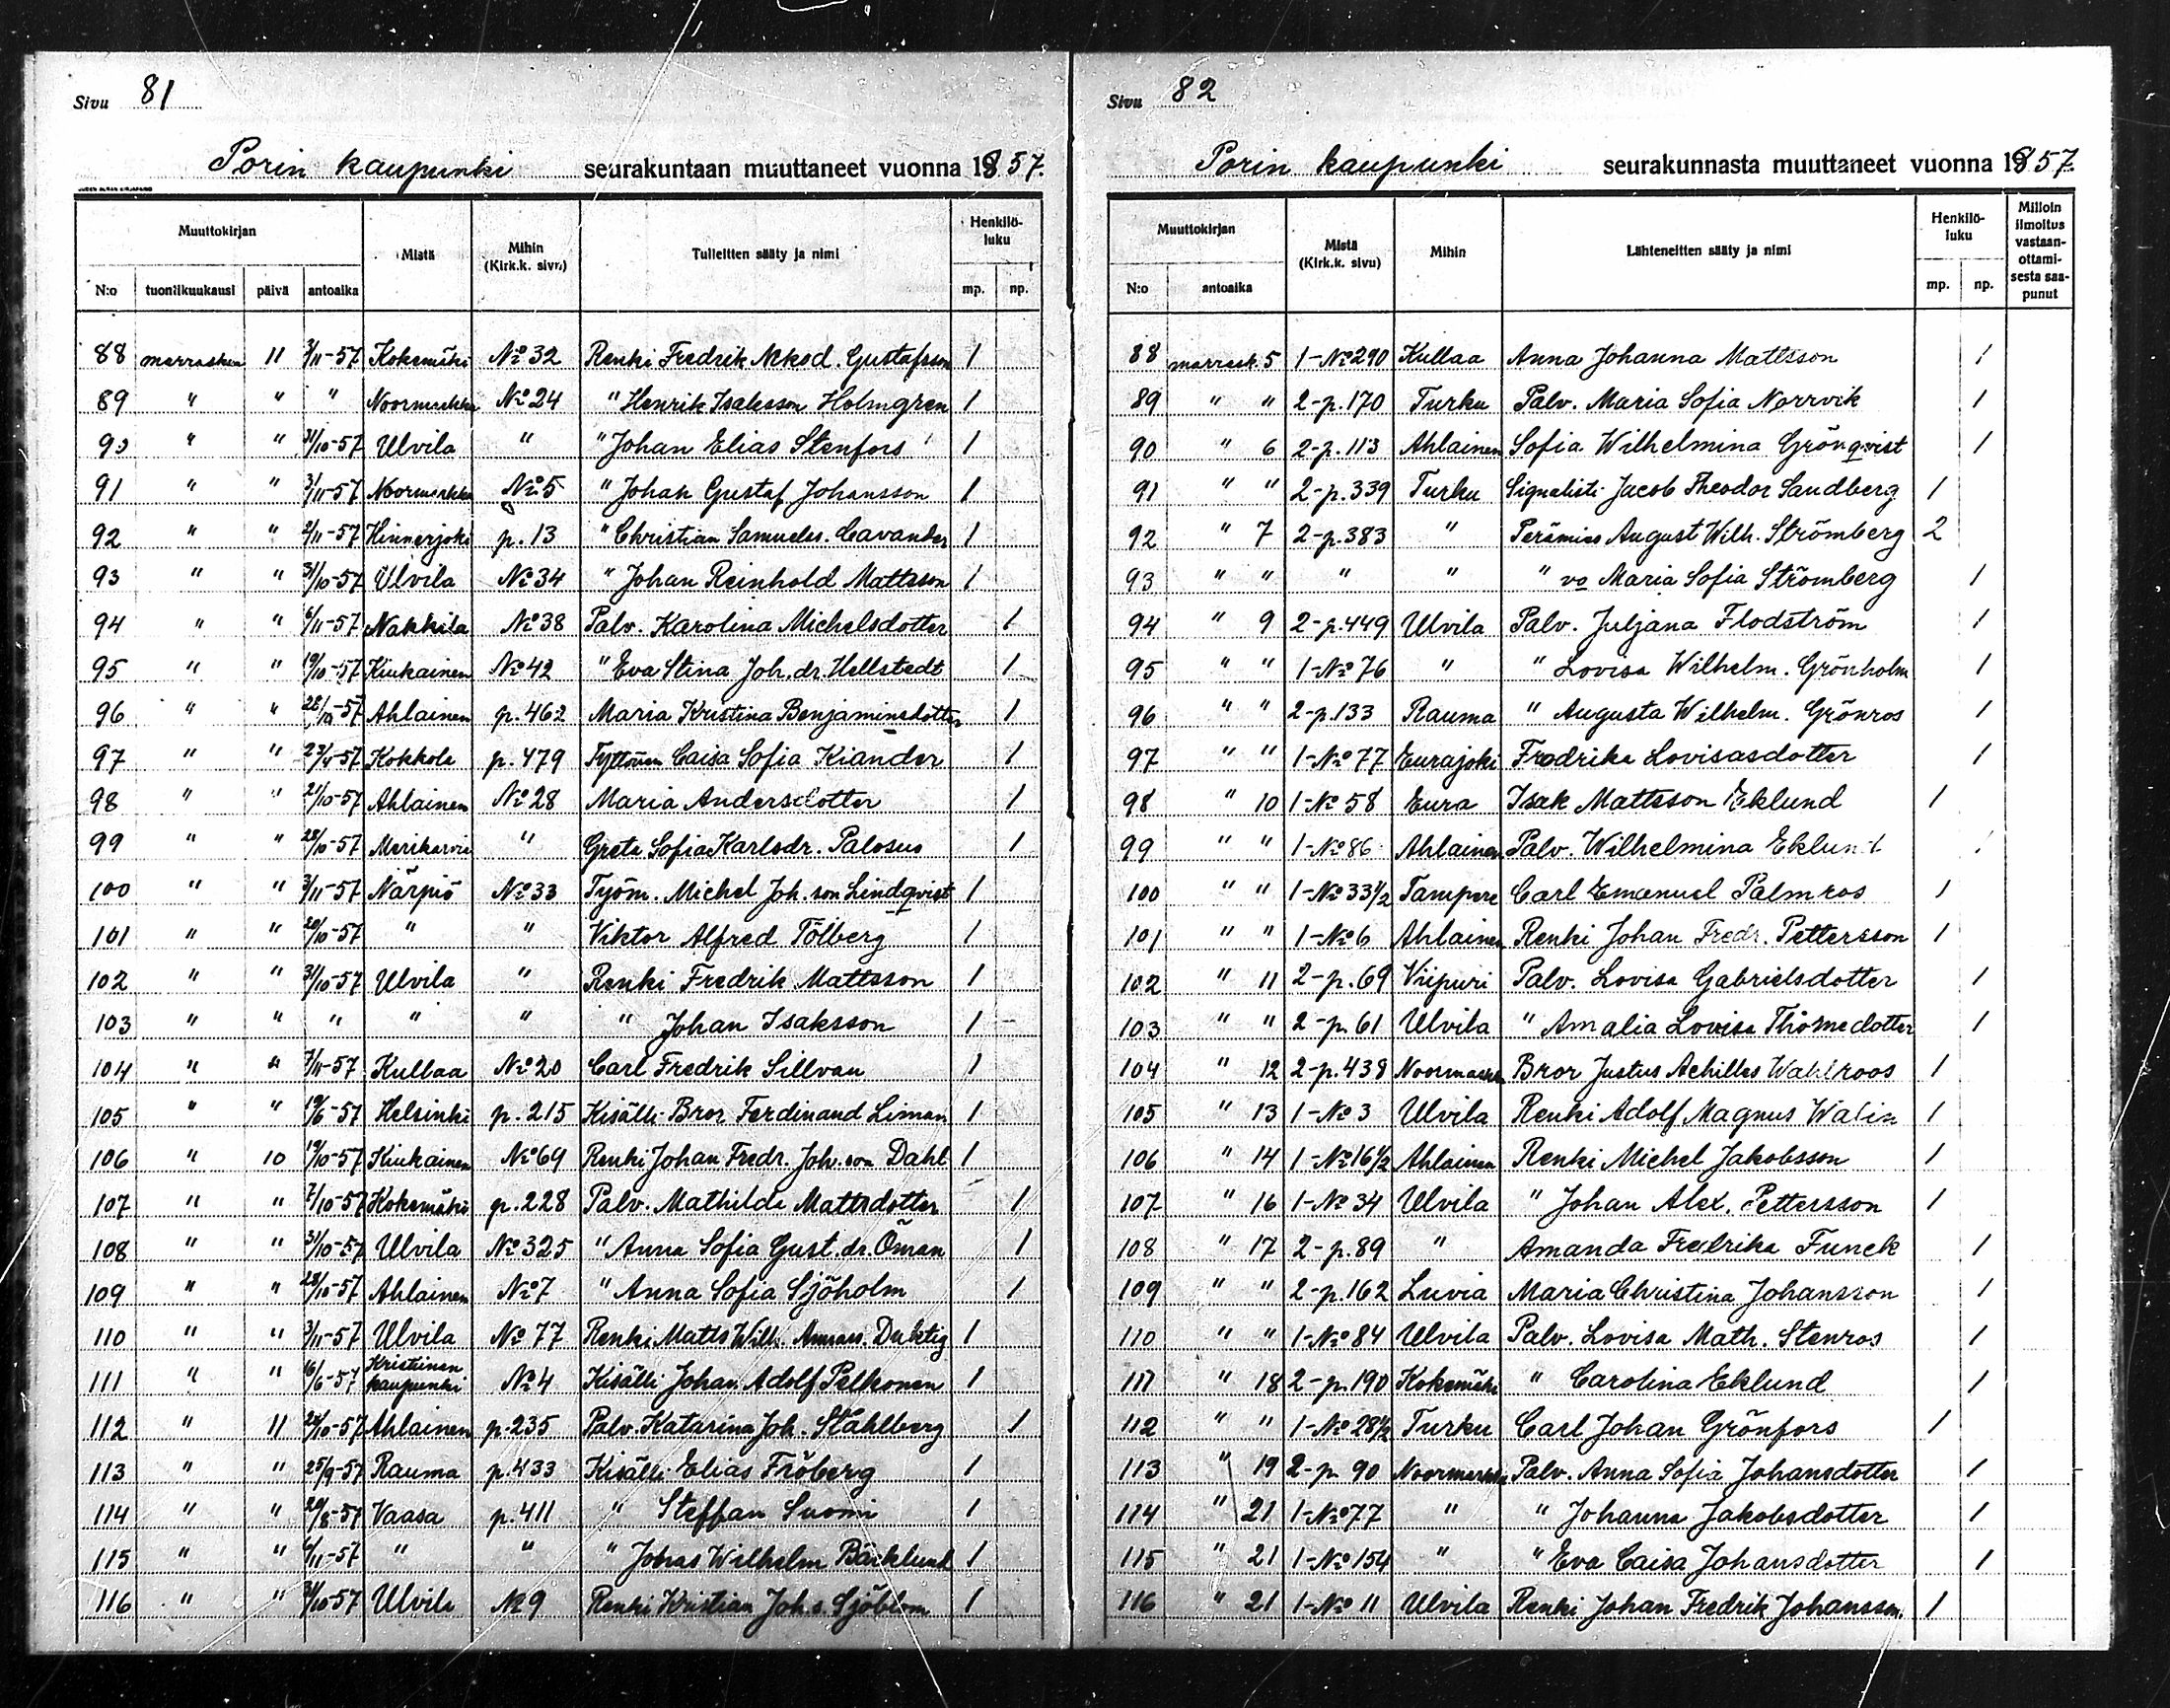 Sivu 81
Porin kaupunki seurakuntaan muuttaneet vuonna 1857.
Muuttokirjan Mistä Mihin (Kirk.k. sivu) Tulleitten sääty ja nimi Henkilö-luku
N:o tuontikuukausi päivä antoaika mp. np.
88 marraskuu 11 3/11-57 Kokemäki No 32 Renki Fredrik Gustafsson 1
89 " " " Noormarkku No 24 " Henrik Isaksson Holmgren 1
90 " " 31/10-57 Ulvila " " Johan Elias Stenfors 1
91 " " 3/11-57 Noormarkku No 5 " Johan Gustaf Johansson 1
92 " " 2/11-57 Hinnerjoki p. 13 " Christian Samuels. Cavander 1
93 " " 31/10-57 Ulvila No 34 " Johan Reinhold Mattsson 1
94 " " 6/11-57 Nakkila No 38 Palv. Karolina Michelsdotter 1
95 " " 19/10-57 Kiukainen No 42 " Eva Stina Joh. dr. Hellstedt 1
96 " " 28/10-57 Ahlainen p. 462 Maria Kristina Benjaminsdotter 1
97 " " 23/4-57 Kokkola p. 479 Caisa Sofia Kiander 1
98 " " 21/10-57 Ahlainen No 28 Maria Andersdotter 1
99 " " 28/10-57 Merikarvia " Greta Sofia Karlsdr. Palosuo 1
100 " " 3/11-57 Närpiö No 33 Työm. Michel Joh. son Lindqvist 1
101 " " 20/10-57 " " Viktor Alfred Tölberg 1
102 " " 31/10-57 Ulvila " Renki Fredrik Mattsson 1
103 " " " " " " Johan Isaksson 1
104 " " 7/11-57 Kullaa No 20 Carl Fredrik Sillvan 1
105 " " 19/6-57 Helsinki p. 215 Kisälli Bror Ferdinand Liman 1
106 " 10 19/10-57 Kiukainen No 69 Renki Johan Fredr. Joh. son Dahl 1
107 " " 7/10-57 Kokemäki p. 228 Palv. Mathilda Mattsdotter 1
108 " " 31/10-57 Ulvila No 325 " Anna Sofia Gust. dr. Öman 1
109 " " 28/10-57 Ahlainen No 7 " Anna Sofia Sjöholm 1
110 " " 3/11-57 Ulvila No 77 Renki Matts Wilh. Duktig 1
111 " " 16/6-57 Kristiinan kaupunki No 4 Kisälli Johan Adolf Pelkonen 1
112 " 11 28/10-57 Ahlainen p. 235 Palv. Katarina Joh. Ståhlberg 1
113 " " 25/9-57 Rauma p. 433 Kisälli Elias Fröberg 1
114 " " 20/8-57 Vaasa p. 411 " Steffan Suomi 1
115 " " 6/11-57 " " " Jonas Wilhelm Bäcklund 1
116 " " 31/10-57 Ulvila No 9 Renki Kristian Joh. s. Sjöblom 1
Sivu 82
Porin kaupunki seurakunnasta muuttaneet vuonna 1857.
Muuttokirjan Mistä (Kirk.k. sivu) Mihin Lähteneitten sääty ja nimi Henkilö-luku Milloin ilmoitus vastaan-ottami-sesta saa-punut
N:o antoaika mp. np.
88 marrask. 5 1-No 290 Kullaa Anna Johanna Mattsson 1
89 " " 2-p. 170 Turku Palv. Maria Sofia Norrvik 1
90 " 6 2-p. 113 Ahlainen Sofia Wilhelmina Grönqvist 1
91 " " 2-p. 339 Turku Signalisti Jacob Theodor Sandberg 1
92 " 7 2-p. 383 " Perämies August Wilh. Strömberg 2
93 " " " " " vo Maria Sofia Strömberg 1
94 " 9 2-p. 449 Ulvila Palv. Juljana Flodström 1
95 " " 1-No 76 " " Lovisa Wilhelm. Grönholm 1
96 " " 2-p. 133 Rauma " Augusta Wilhelm. Grönros 1
97 " " 1-No 77 Eurajoki Fredrika Lovisasdotter 1
98 " 10 1-No 58 Eura Isak Mattsson Eklund 1
99 " " 1-No 86 Ahlainen Palv. Wilhelmina Eklund 1
100 " " 1-No 33 1/2 Tampere Carl Emanuel Palmros 1
101 " " 1-No 6 Ahlainen Renki Johan Fredr. Pettersson 1
102 " 11 2-p. 69 Viipuri Palv. Lovisa Gabrielsdotter 1
103 " " 2-p. 61 Ulvila " Amalia Lovisa Thomedotter 1
104 " 12 2-p. 438 Noormarkku Bror Justus Achilles Wahlroos 1
105 " 13 1-No 3 Ulvila Renki Adolf Magnus Walin 1
106 " 14 1-No 16 1/2 Ahlainen Renki Michel Jakobsson 1
107 " 16 1-No 34 Ulvila " Johan Alex. Pettersson 1
108 " 17 2-p. 89 " Amanda Fredrika Funck 1
109 " " 2-p. 162 Luvia Maria Christina Johansson 1
110 " " 1-No 84 Ulvila Palv. Lovisa Math. Stenros 1
111 " 18 2-p. 190 Kokemäki " Carolina Eklund 1
112 " " 1-No 28 1/2 Turku Carl Johan Grönfors 1
113 " 19 2-p. 90 Noormarkku Palv. Anna Sofia Johansdotter 1
114 " 21 1-No 77 " " Johanna Jakobsdotter 1
115 " 21 1-No 154 " " Eva Caisa Johansdotter 1
116 " 21 1-No 11 Ulvila Renki Johan Fredrik Johansson. 1